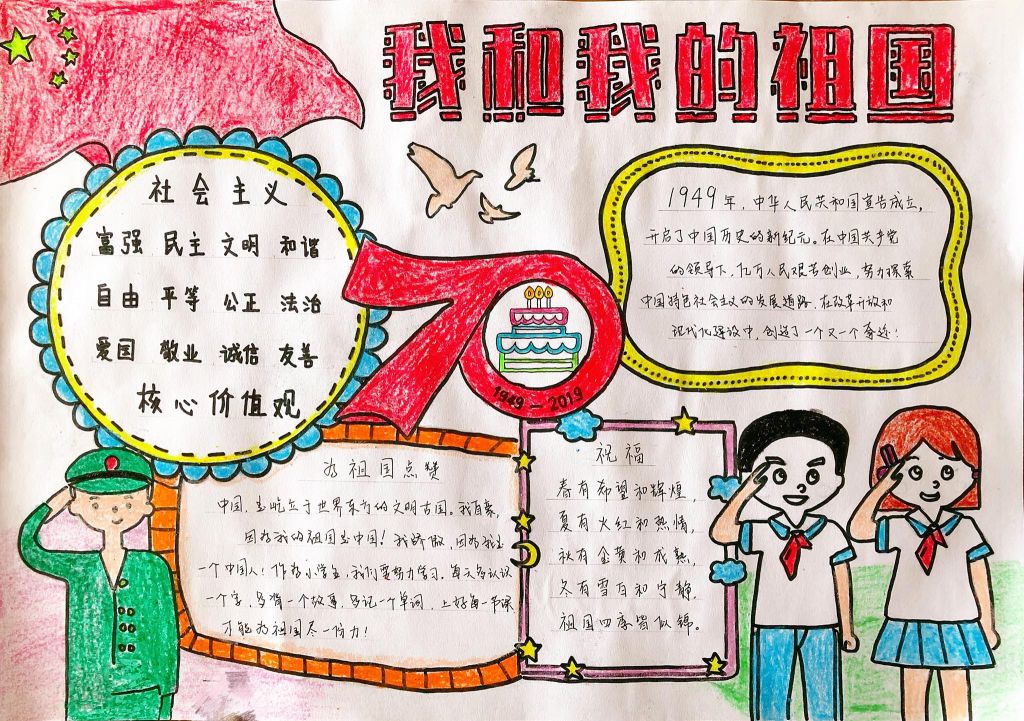 我和我的祖国
社会主义
富强 民主 文明 和谐
自由 平等 公正 法治
爱国 敬业 诚信 友善
核心价值观
1949年,中华人民共和国宣告成立,
开启了中国历史的新纪元。在中国共产党
的领导下,亿万人民艰苦创业,努力探索
中国特色社会主义的发展道路,在改革开放和
现代化建设中,创造了一个又一个奇迹!
70
1949-2019
为祖国点赞
中国,是屹立于世界东方的文明古国。我自豪,
因为我的祖国是中国!我骄傲,因为我是
一个中国人!作为小学生,我们要努力学习。每天多认识
一个字,多背一个故事,多记一个单词,上好每一节课
才能为祖国尽一份力!
祝福
春有希望和辉煌,
夏有火红和热情,
秋有金黄和成熟,
冬有雪白和宁静,
祖国四季皆似锦。